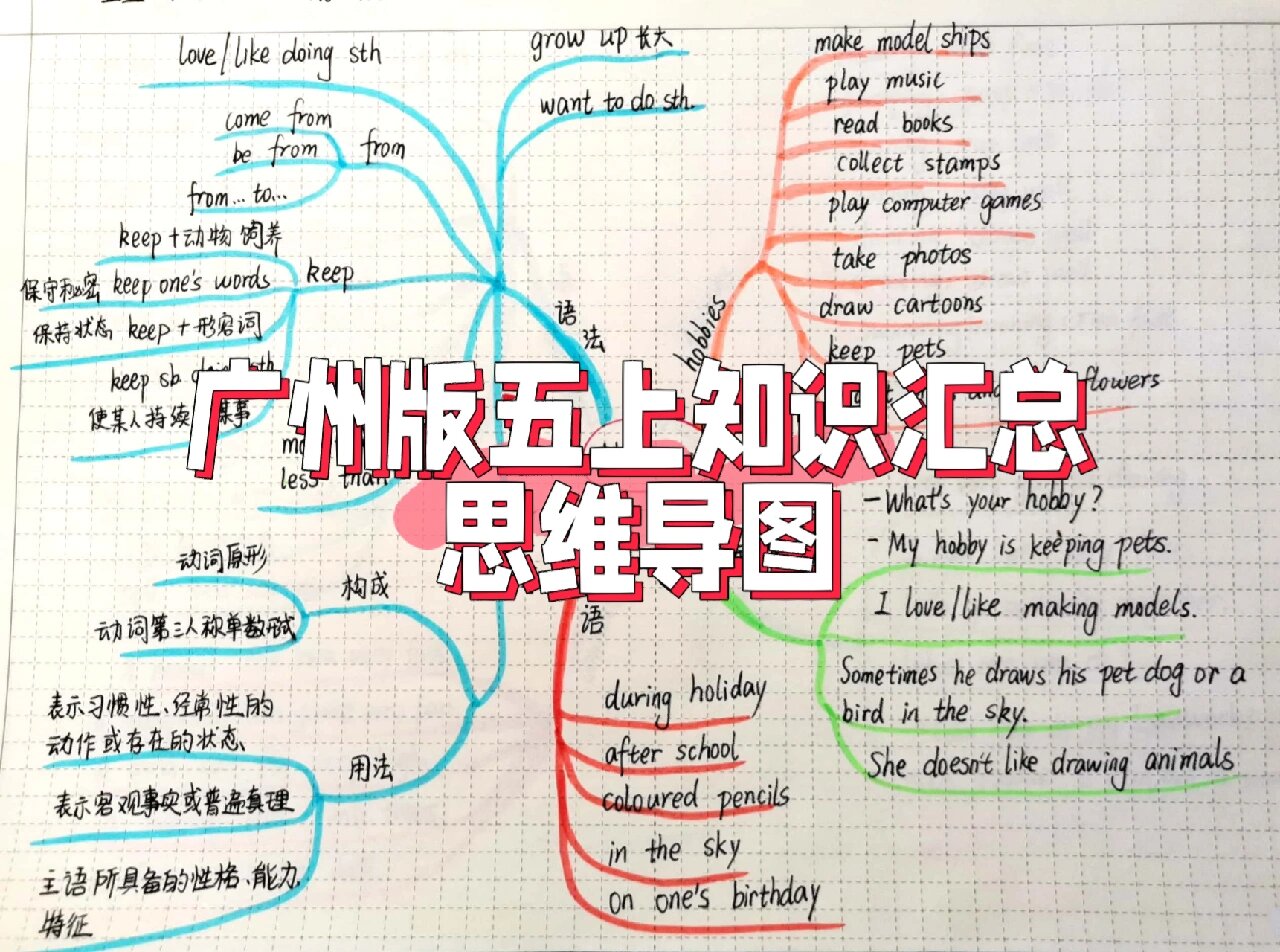 广州版五上知识汇总
思维导图
love/like doing sth
come from
be from
from
from...to...
keep+动物 饲养
保守秘密 keep one's words
keep
保持状态 keep+形容词
keep sb
使某人持续
less than
grow up 长大
want to do sth.
语法
hobbies
make model ships
play music
read books
collect stamps
play computer games
take photos
draw cartoons
keep pets
flowers
-What's your hobby?
- My hobby is keeping pets.
I love/like making models.
Sometimes he draws his pet dog or a
bird in the sky.
She doesn't like drawing animals
动词原形
构成
动词第三人称单数形式
表示习惯性、经常性的
动作或存在的状态
用法
表示客观事实或普遍真理
主语所具备的性格、能力、
特征
语
during holiday
after school
coloured pencils
in the sky
on one's birthday